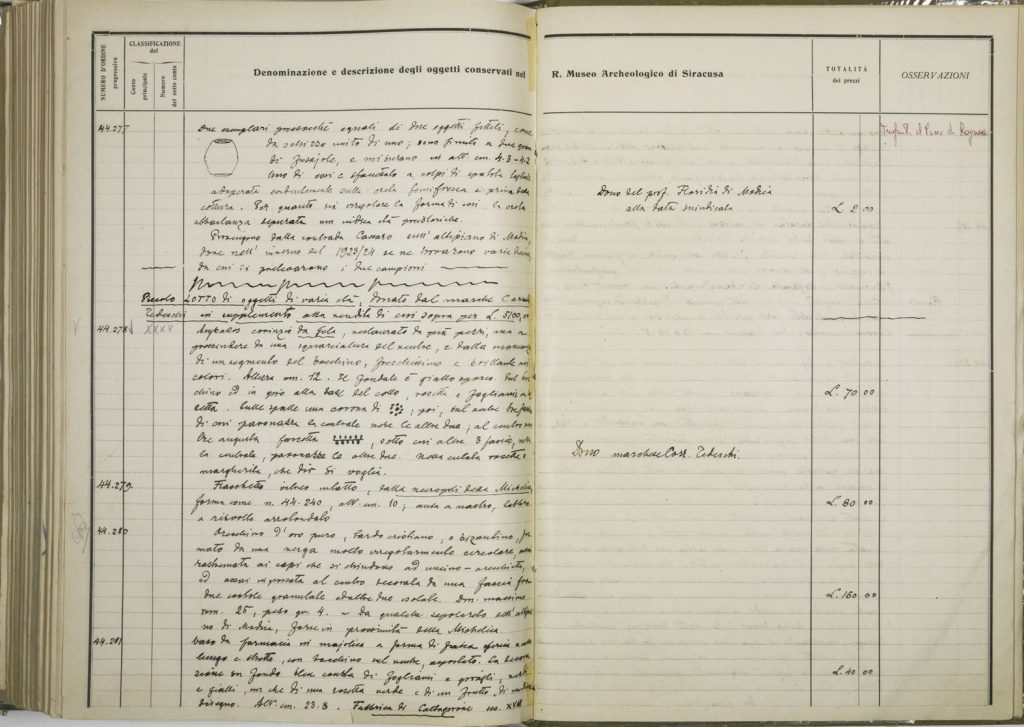 NUMERO D'ORDINE progressivo
CLASSIFICAZIONE del
Conto principale
Numero del sotto conto
Denominazione e descrizione degli oggetti conservati nel R. Museo Archeologico di Siracusa
TOTALITÀ dei prezzi
OSSERVAZIONI
44.277 Due esemplari pressochè eguali di due oggetti fittili, come
da schizzo unito di uno; sono finiti a due
di fusajole, e misurano in alt. cm. 4.3 - 4.2
di essi è sfaccettato a colpi di
adoperate evidentemente sulla creta e prima della
cottura. Per quanto sia irregolare la forma di essi la creta
abbastanza depurata età preistoriche.
Provengono dalla contrada Cassaro sull'altipiano di Modica,
dove nell'inverno del 1923/24 se ne trovarono varie
da cui si prelevarono i due campioni
Dono del prof. Floridia di Modica
alla data suindicata
L. 2 00
Piccolo LOTTO di oggetti di varia età, donato dal marchese
Tedeschi in supplemento alla vendita di cui sopra per L. 5100,
44.278 XXXV
corinzio da Gela, restaurato da più pezzi, ma a
prescindere da una squarciatura del ventre, e dalla mancanza
di un segmento del bocchino, freschissimo e brillante nei
colori. Altezza cm. 12. Il fondale è giallo sporco. Sul
chino ed in giro alla base del collo, rosette e fogliami
Sulle spalle una corona di ; poi, sul ventre tre fasce
di cui paonazza la centrale nere le altre due; al centro
angusta fascetta , sotto cui altre 3 fascie, nera
la centrale, paonazze le altre due. Nella culatta rosetta
margherita, che dir si voglia.
L. 70 00
Dono marchese Tedeschi.
44.279 Fiaschetto intatto, dalla necropoli della Michelica,
forma come n. 44.240, alt. cm. 10; ansa a nastro, labbro
a risvolto arrotondato
L. 80 00
44.280 Orecchino d'oro puro, tardo cristiano, o bizantino,
mato da una verga molto irregolarmente circolare,
rastremata ai capi che si chiudono ad uncino - occhietto,
ed assai ingrossata al centro decorata da una fascia fra
due costole granulate ed altre due isolate. Dm. massimo
mm. 25, peso gr. 4. - Da qualche sepolcreto
no di Modica, forse in prossimità della Michelica
L. 160 00
44.281 Vaso da farmacia in majolica a forma di fiasca sferica a collo
lungo e stretto, con bocchino sul ventre, asportato. La decora
zione su fondo bleu consta di fogliami e
e gialli, di una rosetta verde e di un frutto, di
disegno. Alt. cm. 23.8. Fabbrica di Caltagirone sec. XVII
L. 40 00